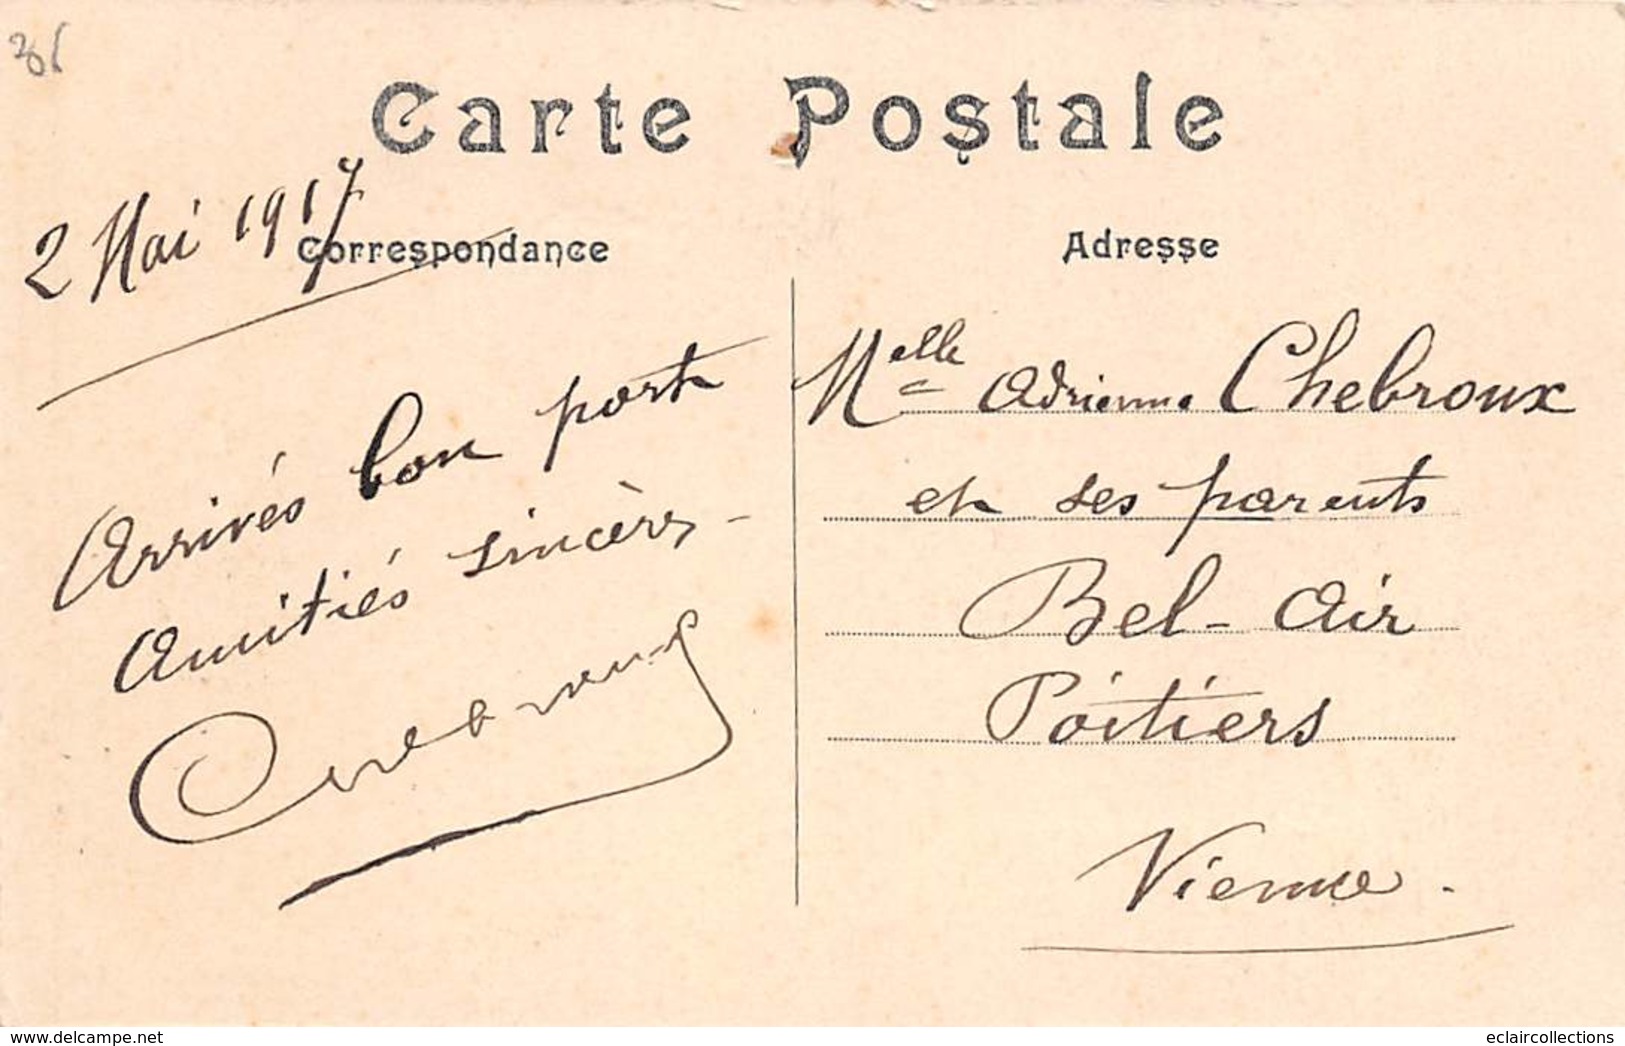 Carte Postale
2 Mai 1917
Correspondance
Arrivés bon port
Amitiés sincères -
Adresse
Melle Adrienne Chebroux
et ses parents
Bel-Air
Poitiers
Vienne.
www.delcampe.net
eclaircollections